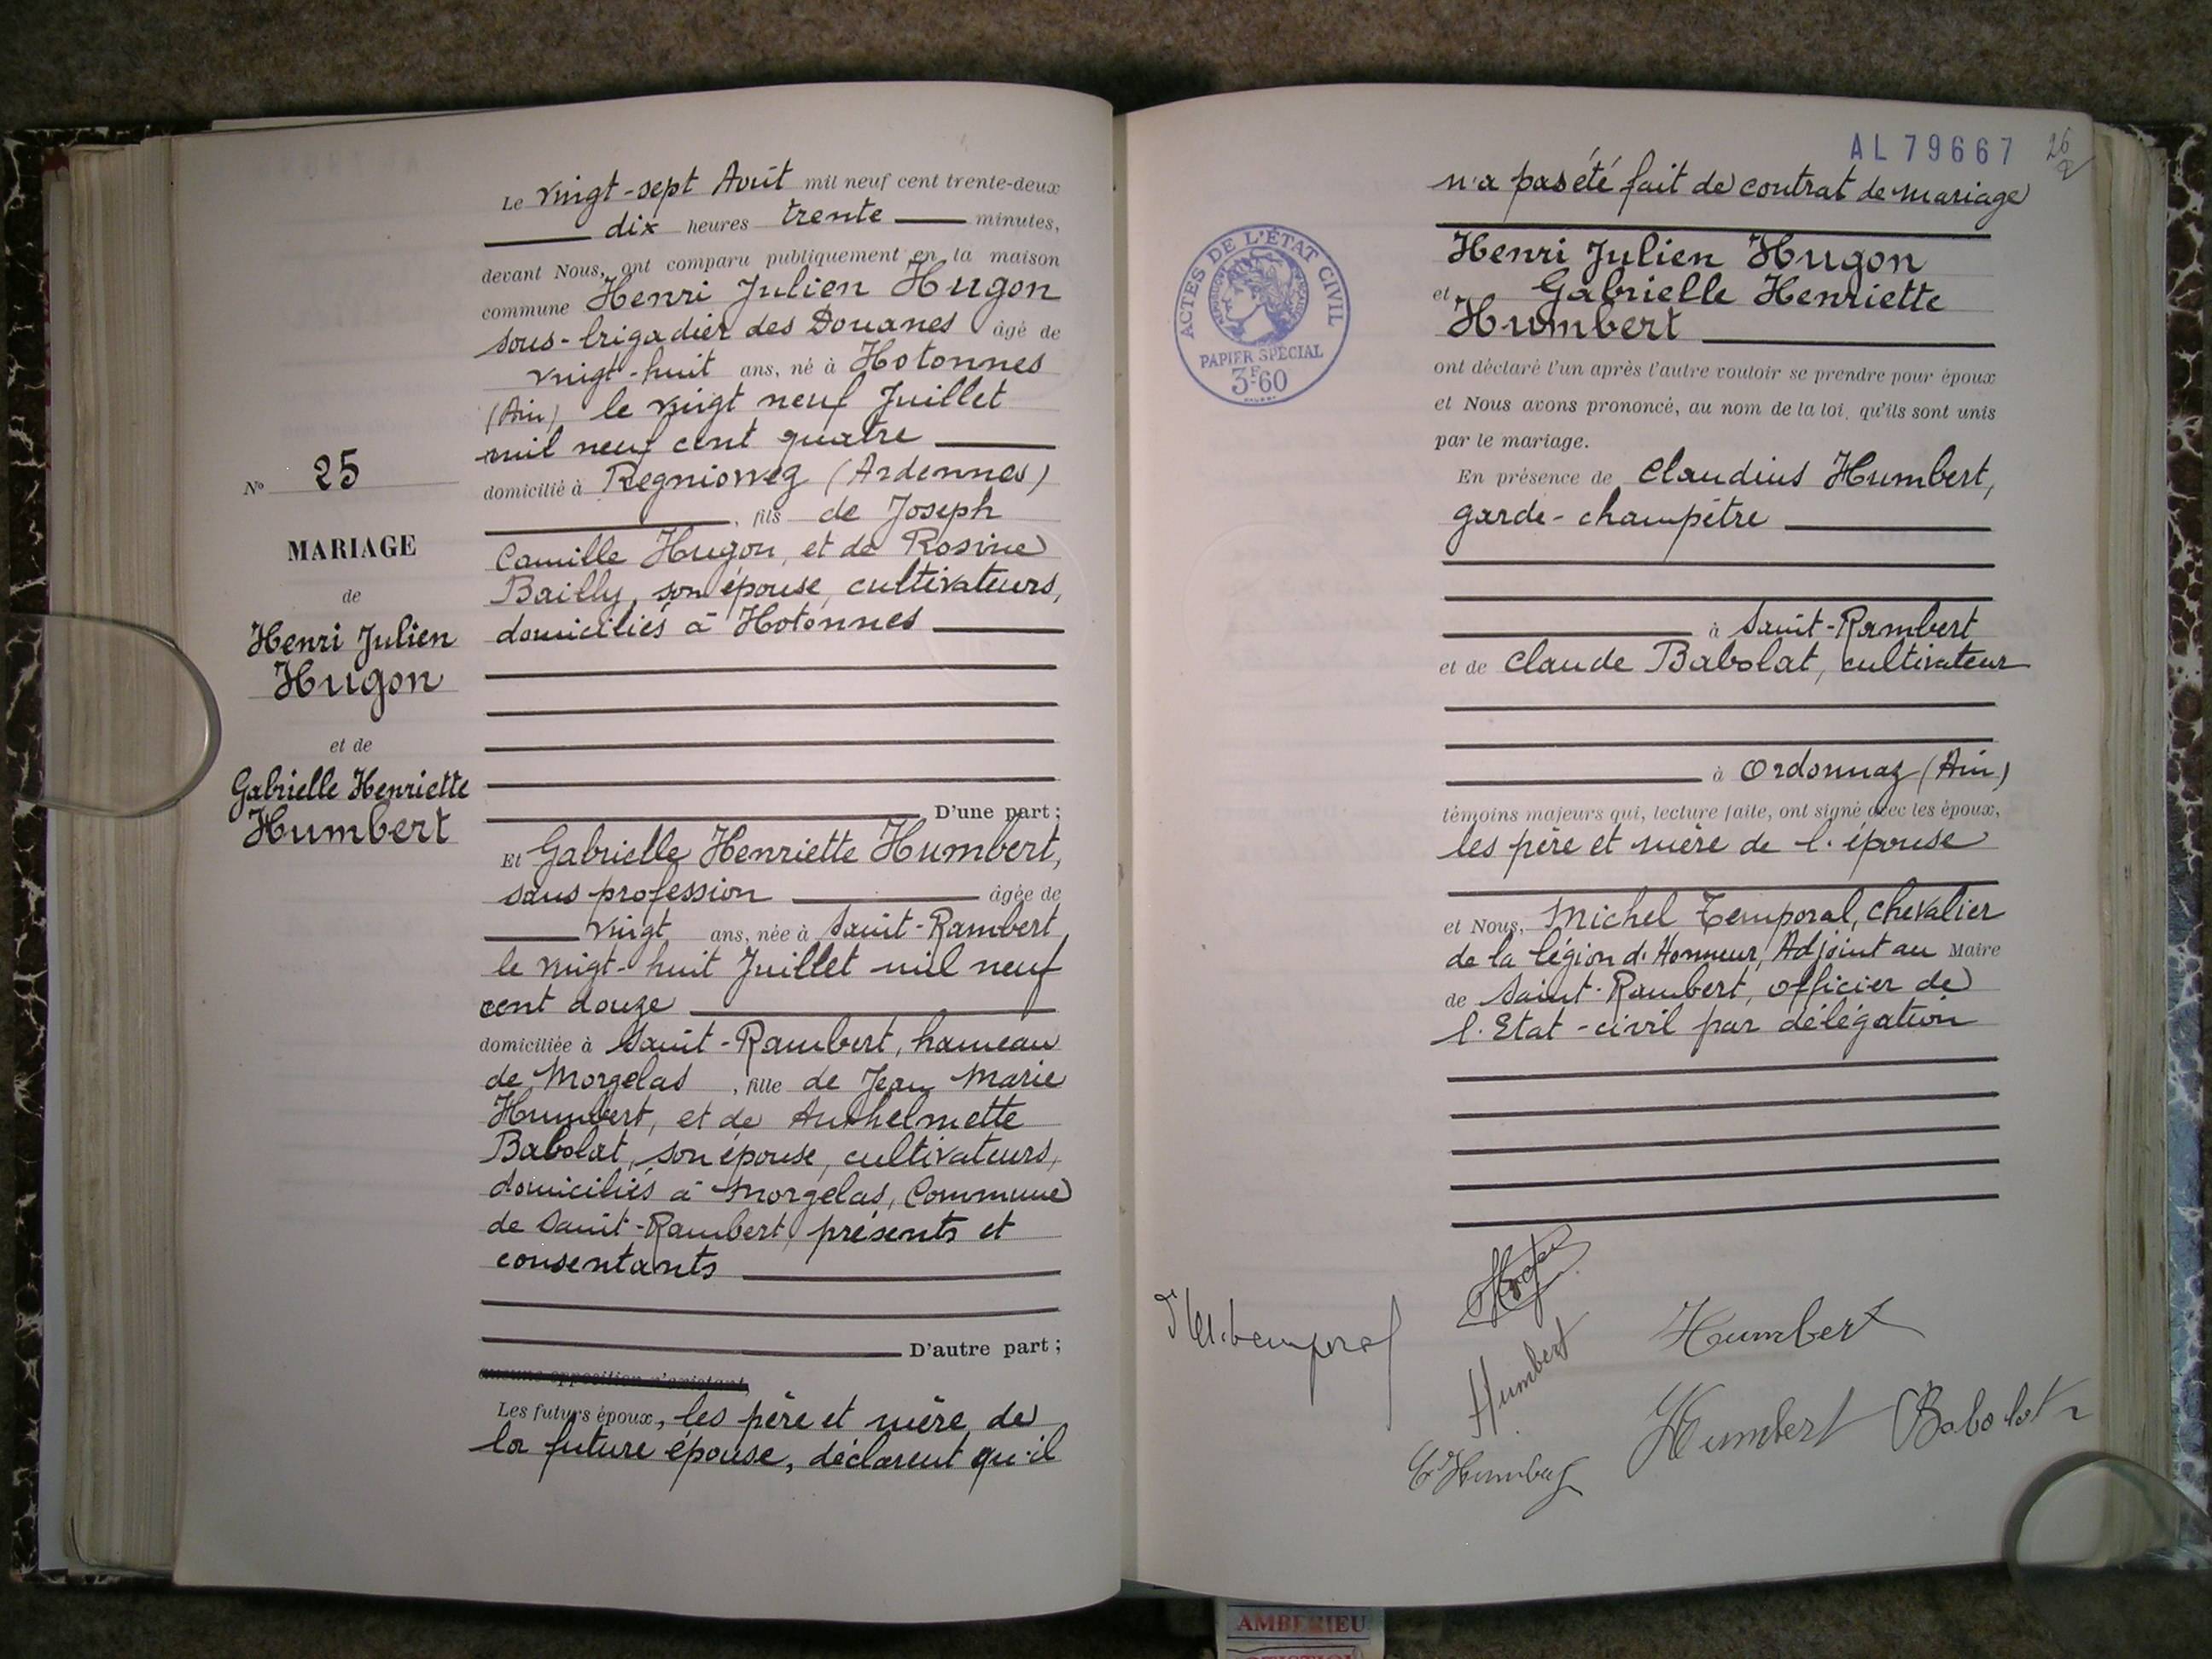 Le vingt-sept Août mil neuf cent trente-deux
dix heures trente minutes,
devant Nous, ont comparu publiquement en la maison
commune Henri Julien Hugon
sous-brigadier des Douanes âgé de
vingt-huit ans, né à Hotonnes
(Ain) le vingt neuf Juillet
mil neuf cent quatre
domicilié à Regniowez (Ardennes)
, fils de Joseph
Camille Hugon, et de Rosine
Bailly, son épouse, cultivateurs,
domiciliés à Hotonnes
D'une part;
Et Gabrielle Henriette Humbert,
sans profession âgée de
vingt ans, née à Saint-Rambert
le vingt-huit Juillet mil neuf
cent douze
domiciliée à Saint-Rambert, hameau
de Morgelas, fille de Jean Marie
Humbert, et de Anthelmette
Babolat, son épouse, cultivateurs,
domiciliés à Morgelas, Commune
de Saint-Rambert, présents et
consentants
D'autre part;
aucune opposition n'existant,
Les futurs époux, les père et mère de
la future épouse, déclarent qu'il
No 25
MARIAGE
de
Henri Julien
Hugon
et de
Gabrielle Henriette
Humbert
AL 79667
26
n'a pas été fait de contrat de mariage
Henri Julien Hugon
et Gabrielle Henriette
Humbert
ont déclaré l'un après l'autre vouloir se prendre pour époux
et Nous avons prononcé, au nom de la loi, qu'ils sont unis
par le mariage.
En présence de Claudius Humbert,
garde-champêtre
à Saint-Rambert
et de Claude Babolat, cultivateur
à Ordonnaz (Ain)
témoins majeurs qui, lecture faite, ont signé avec les époux,
les père et mère de l'épouse
et Nous, Michel Temporal, chevalier
de la légion d'Honneur, Adjoint au Maire
de Saint-Rambert, officier de
l'Etat-civil par délégation
ACTES DE L'ÉTAT CIVIL
PAPIER SPÉCIAL
3F60
M. temporal
Humbert
Humbert
Humbert Babolat
Humbert
AMBERIEU